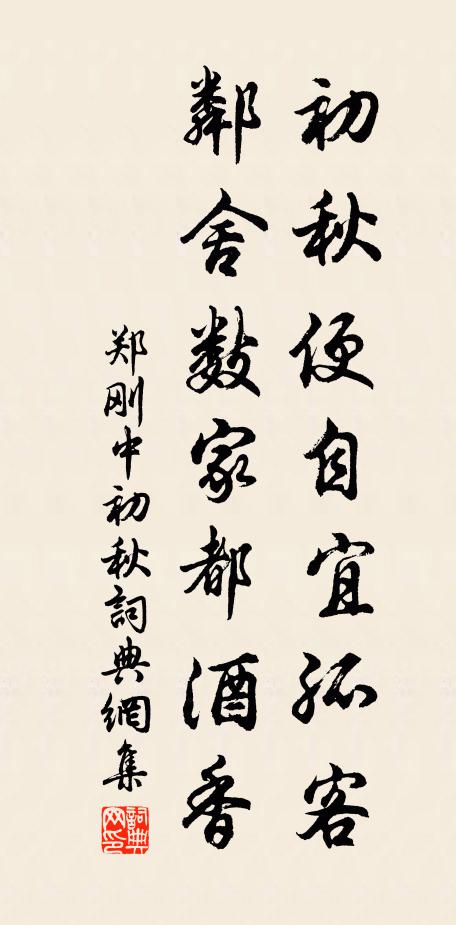 初秋便自宜孤客
鄰舍數家都酒香
郑刚中初秋詞典網集
詞典網印